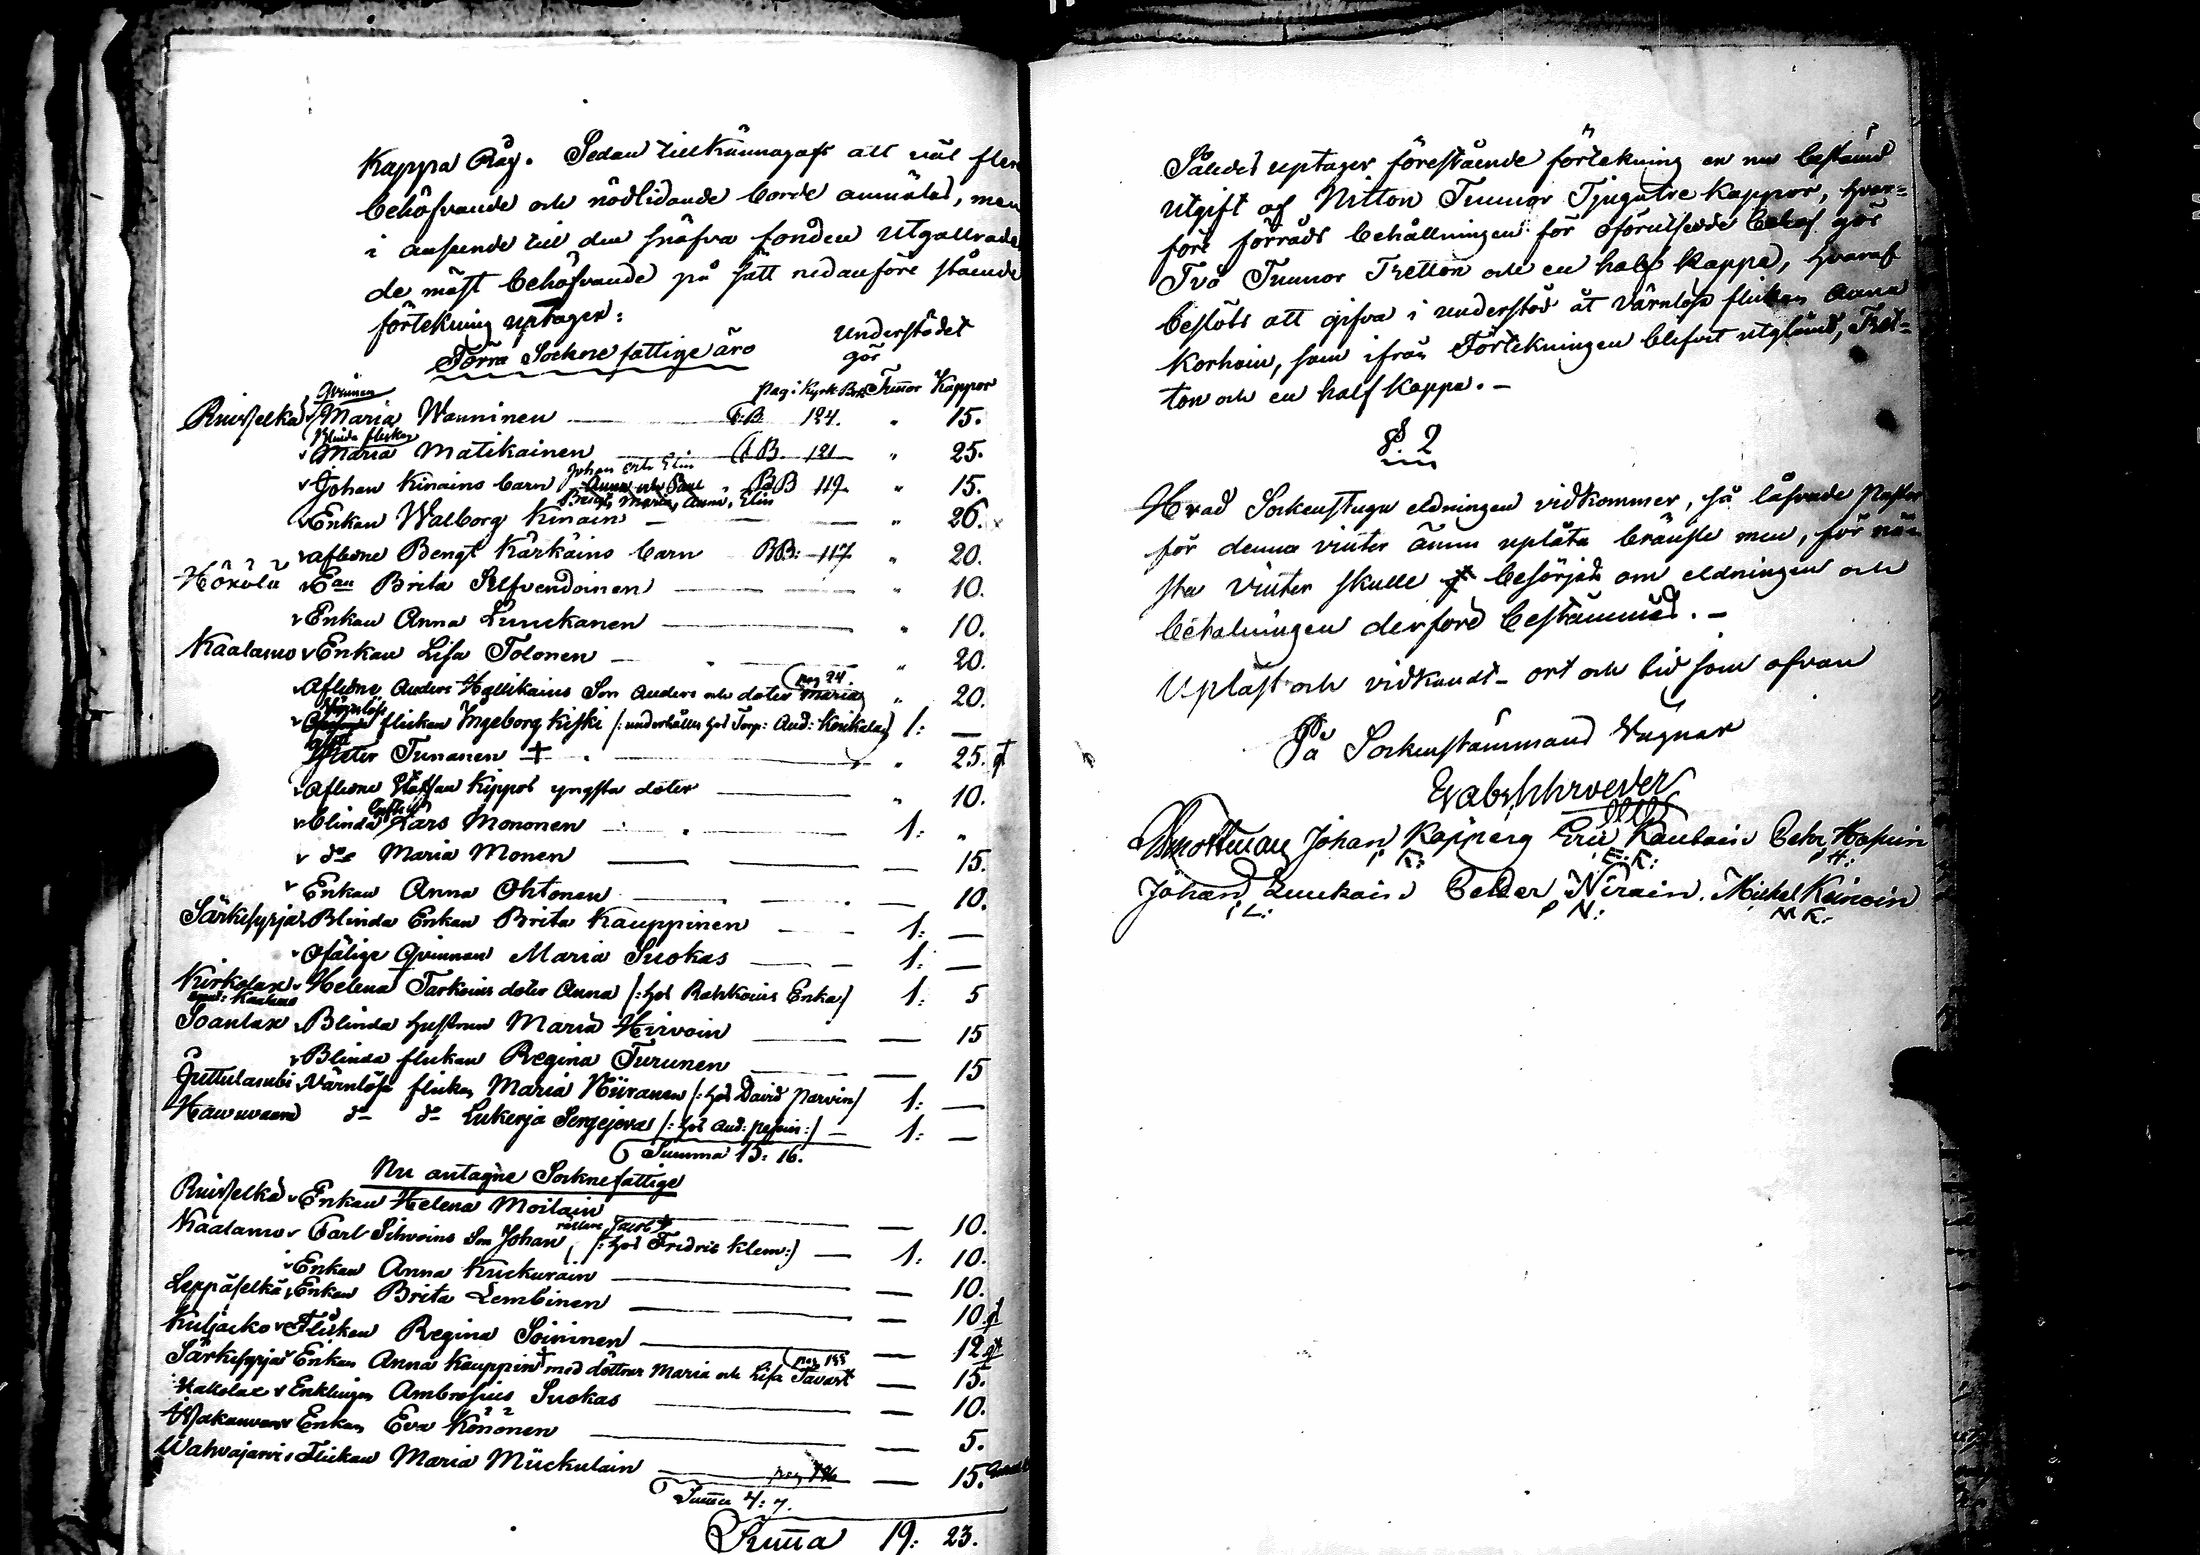 Kappa Råg. Sedan tillkännagafs att väl flere
behöfvande och nödlidande borde anmälas, men
i anseende till den snäfva fonden utgallrades
de mäst behöfvande på sätt nedanföre stående
förtekning uptager:
Förra Sockne fattige äro Understödet
gör
pag: i Kyrk Bok Tunnor Kappor
Qvinnan
Ruisselkä Maria Wanninen B:B. 124. " 15.
Blinda flickan
Maria Matikainen B. 121 " 25.
Johan och Elin
Johan Kinains barn Anna och Paul BB 119 " 15.
Bengt, Maria, Anna, Elin
Enkan Walborg Kinain " 26.
aflidne Bengt Kärkäins barn BB: 117 " 20.
Hökölä Ean Brita Silfvendoinen " 10.
Enkan Anna Lunckanen " 10.
Kaalamo Enkan Lisa Tolonen " 20.
pag 24.
Aflidne Anders Hyllikains Son Anders och doter Maria " 20.
Värnlösa
flickan Ingeborg Kiski /: underhålles hos Torp: And: Konkala :/ 1: —
Pieter Tunanen + " 25.
Aflidne Staffan Kippos yngsta doter " 10.
blinda Lars Mononen 1: "
do Maria Monen — 15.
Enkan Anna Ohtonen — 10.
Särkisyrjä Blinda Enkan Brita Kauppinen 1: —
Ofälige Qvinnan Maria Suokas 1: —
Kirkolax Helena Tarkoins doter Anna /: hos Rahkoins Enka :/ 1: 5
Soanlax Blinda hustrun Maria Hirvoin — 15
Blinda flickan Regina Turunen — 15
Juttulambi Värnlösa flickan Maria Niiranen /: hos David Parvin :/ 1: —
Hawuvaara do do Lukerja Sergejeva /: hos And: Pesoin :/ 1: —
Summa 15: 16.
Nu antagne Socknefattige
Ruisselkä Enkan Helena Moilain — 10.
Jacob
Kaalamo Carl Sihvoins Son Johan /: hos Fridric Klem: :/ 1: 10.
Enkan Anna Kuckurain — 10.
Leppäselkä Enkan Brita Lembinen — 10
Kuljacko Flickan Regina Soininen — 12
pag 155
Särkisyrjä Enkan Anna Kauppin + med döttrar Maria och Lisa Tavast — 15.
Hakolax Enklingen Ambrosius Suokas — 10.
Enkan Eva Könönen — 5.
Wahvajarvi Flickan Maria Mückulain pag — 15.
Summa 4: 7.
Summa 19: 23.
Således uptager förestående förtekning en nu bestämd
utgift af Nitton Tunnor Tjugutre kappor, hvar=
före förråds behållningen för oförutsedde behof gör
Två Tunnor Tretton och en half kappa, hvaraf
beslöts att gifva i understöd åt värnlösa flickan Anna
Korhoin, som ifrån Förtekningen blifvit utglömd, Tret=
ton och en half kappa. —
§ 2
Hvad Sockenstugu eldningen vidkommer, så låfvade Pastor
för denna vinter ännu uplåta bränsle men, för nä
sta vinter skulle besörjas om eldningen och
betalningen derföre bestämmas. —
Upläst och vidkändt — ort och tid som ofvan
På Sockenstämmans Vägnar
Johan Kapperg Eric Kaubain Petr Hapuin
I K: E: K: P H:
Johan Lunkain Petter Nirain. Michel Keinoin
I L: P N: M K: